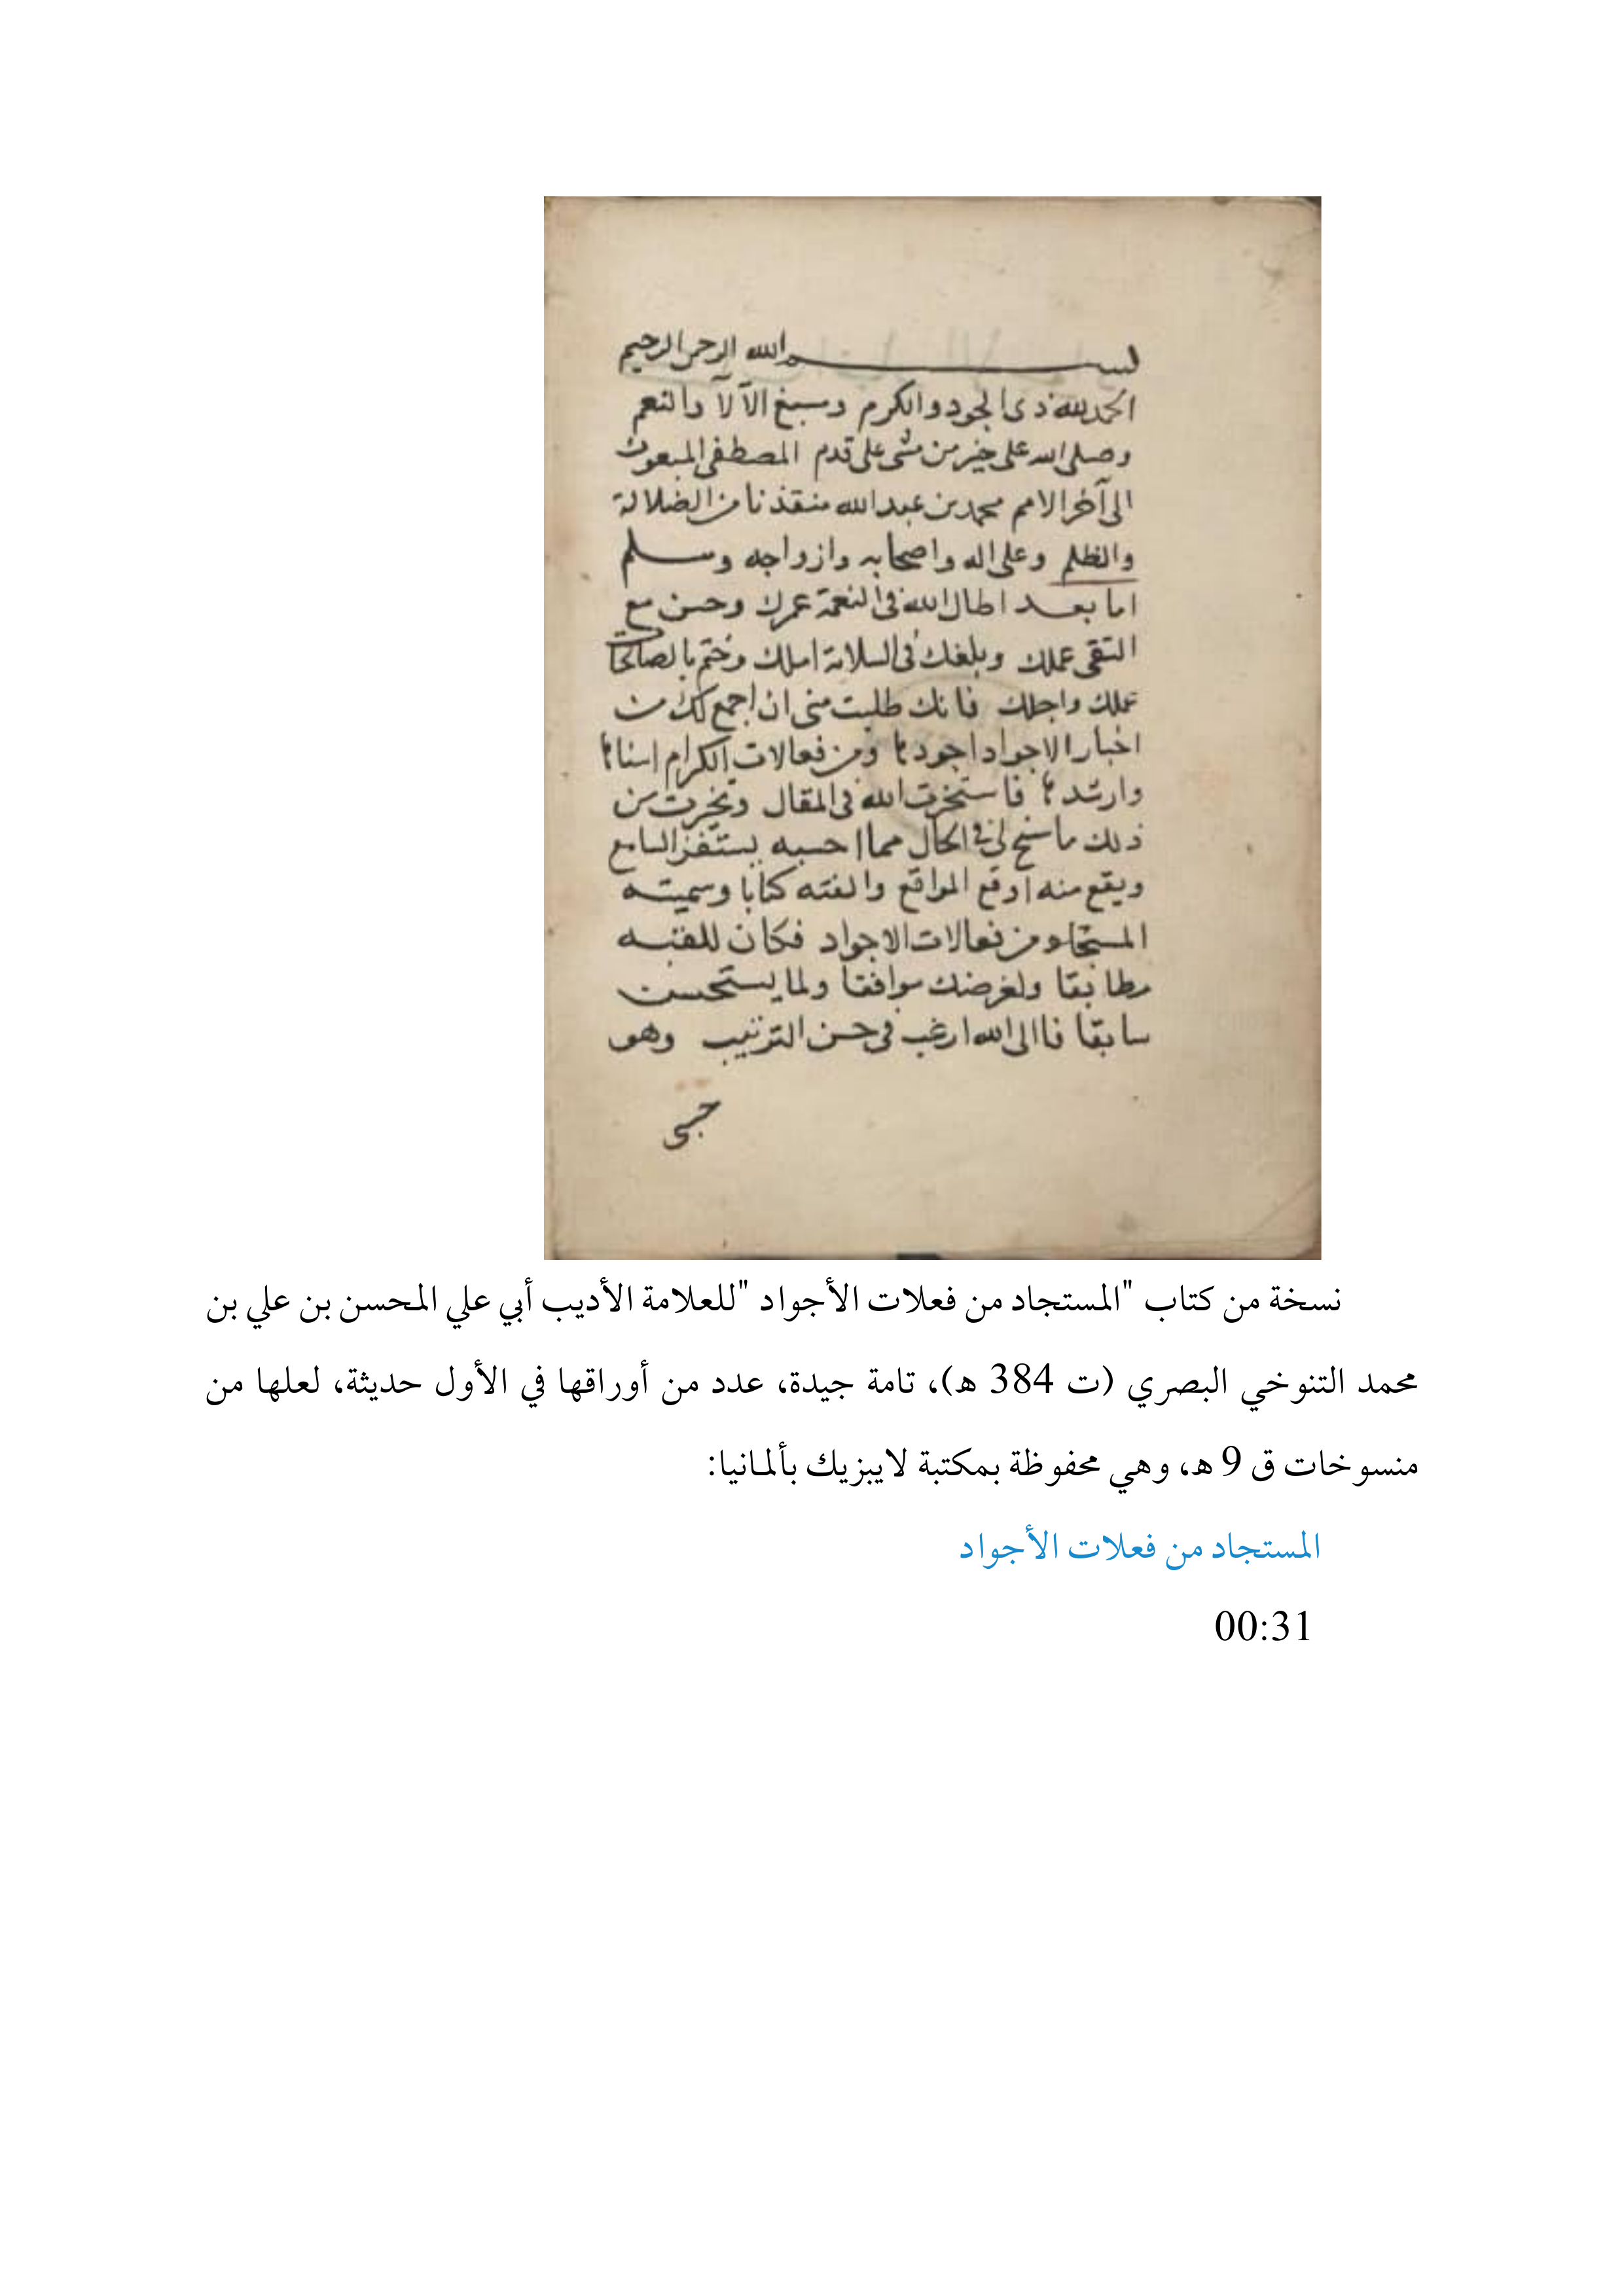 بسم الله الرحمن الرحيم
الحمد لله ذى الجود والكرم ومسبغ الآلآ والنعم
وصلى الله على خير من مشى على قدم المصطفى المبعوث
الى آخر الامم محمد بن عبد الله منقذنا من الضلالة
والظلم وعلى اله واصحابه وازواجه وسلم
اما بعد اطال الله فى النعمة عمرك وحسن مع
التقى عملك وبلغك فى السلامة املك وختم بالصالحات
عملك واجلك فانك طلبت منى ان اجمع لك من
اخبار الاجواد اجودها ومن فعالات الكرام اسناها
وارشدها فاستخرت الله فى المقال وتخيرت من
ذلك ما سنح لى فى الحال مما احسبه يستفز السامع
ويقع منه اوقع المواقع والفته كتابا وسميته
المستجاد من فعالات الاجواد فكان للقبه
مطابقا ولغرضك موافقا ولما يستحسن
سابقا فاالى الله ارغب فى حسن الترتيب وهو
حسبى
نسخة من كتاب "المستجاد من فعلات الأجواد "للعلامة الأديب أبي علي المحسن بن علي بن
محمد التنوخي البصري (ت 384 ه)، تامة جيدة، عدد من أوراقها في الأول حديثة، لعلها من
منسوخات ق 9 ه، وهي محفوظة بمكتبة لايبزيك بألمانيا:
المستجاد من فعلات الأجواد
00:31